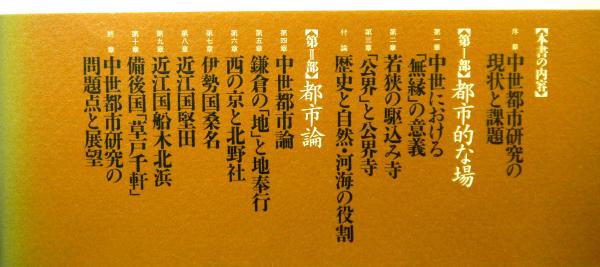 【本書の内容】
序章 中世都市研究の
現状と課題
【第Ⅰ部】都市的な場
第一章 中世における
「無縁」の意義
第二章 若狭の駆込み寺
第三章 「公界」と公界寺
付論 歴史と自然・河海の役割
【第Ⅱ部】都市論
第四章 中世都市論
第五章 鎌倉の「地」と地奉行
第六章 西の京と北野社
第七章 伊勢国桑名
第八章 近江国堅田
第九章 近江国船木北浜
第十章 備後国「草戸千軒」
終章 中世都市研究の
問題点と展望